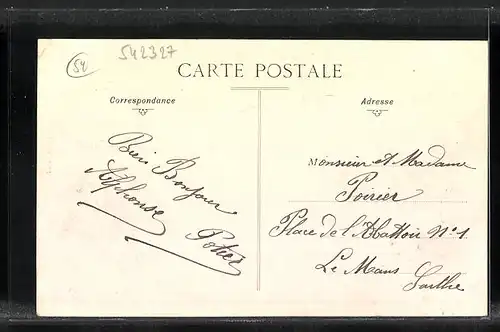 54
542327
CARTE POSTALE
Correspondance
Bien Bonjour
Alphonse
Potier
Adresse
Monsieur et Madame
Poirier
Place de l'Abattoir N° 1
Le Mans
Sarthe